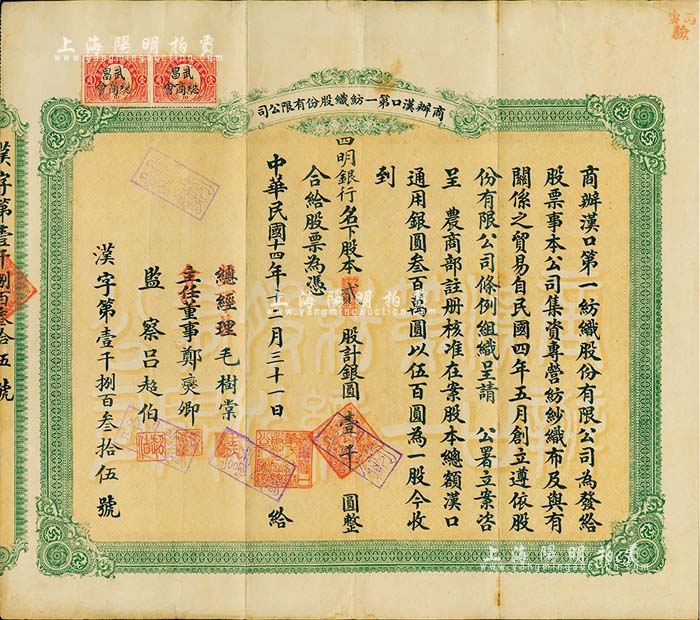 上海陽明拍賣
www.yangmingauction.com
武昌總商會
武昌總商會
商辦漢口第一紡織股份有限公司
商辦漢口第一紡織股份有限公司為發給
股票事本公司集資專營紡紗織布及與有
關係之貿易自民國四年五月創立遵依股
份有限公司條例組織呈請 公署立案咨
呈 農商部註册核准在案股本總額漢口
通用銀圓叁百萬圓以伍百圓為一股今收
到
四明銀行名下股本貳股計銀圓壹千圓整
合給股票為憑
中華民國十四年十二月三十一日 給
總經理毛樹棠
主任董事鄭奠卿
監察呂超伯
漢字第壹千捌百叁拾伍號
漢字第壹千捌百叁拾五號